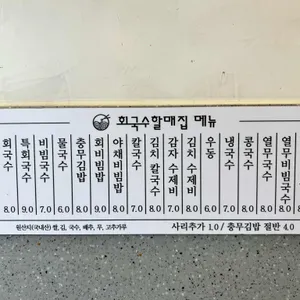 회국수할매집 메뉴
회국수 8.0
특회국수 9.0
비빔국수 7.0
물국수 6.0
충무김밥 8.0
회비빔밥 8.0
야채비빔밥
칼국수 7.0
김치 칼국수 8.0
감자 수제비 8.0
김치 수제비 8.0
우동 6.0
냉국수 7.0
콩국수 8.0
열무국수 8.0
열무비빔국수 8.0
원산지(국내산) 쌀, 김, 국수, 배추, 무, 고추가루
사리추가 1.0 / 충무김밥 절반 4.0